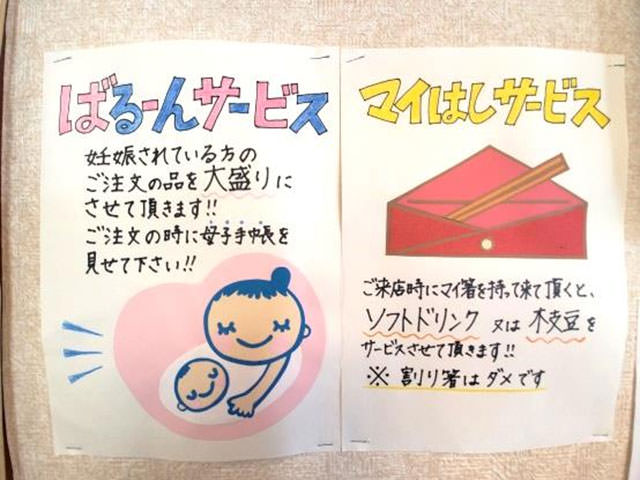 ばるーんサービス
妊娠されている方の
ご注文の品を大盛りに
させて頂きます!!
ご注文の時に母子手帳を
見せて下さい!!
マイはしサービス
ご来店時にマイ箸を持って来て頂くと、
ソフトドリンク 又は 枝豆を
サービスさせて頂きます!!
※ 割り箸はダメです